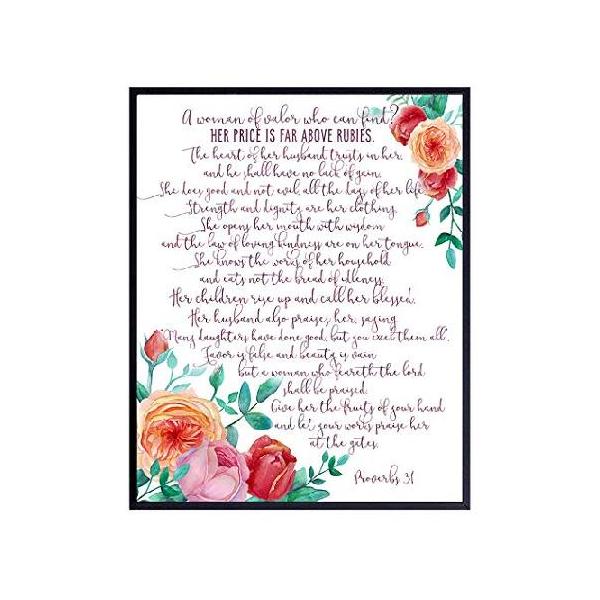 A woman of valor who can find?
HER PRICE IS FAR ABOVE RUBIES.
The heart of her husband trusts in her,
and he shall have no lack of gain.
She does good and not evil all the days of her life
Strength and dignity are her clothing.
She opens her mouth with wisdom
and the law of loving kindness are on her tongue.
She knows the works of her household
and eats not the bread of idleness.
Her children rise up and call her blessed.
Her husband also praises her, saying
"Many daughters have done good, but you excel them all.
Favor is false and beauty is vain
but a woman who feareth the lord
shall be praised.
Give her the fruits of your hand
and let your works praise her
at the gates.
Proverbs 31